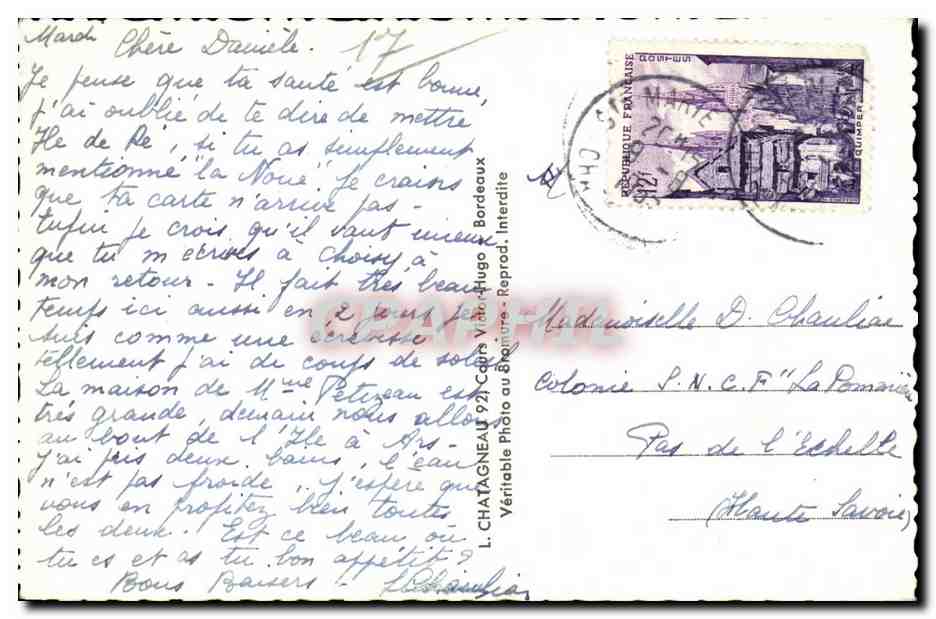 Mardi Chère Danièle. 17
Je pense que ta santé est bonne,
j'ai oublié de te dire de mettre
Ile de Ré, si tu as simplement
mentionné "la Noue" je crains
que ta carte n'arrive pas -
Enfin je crois qu'il vaut mieux
que tu m'écrives à Choisy à
mon retour - Il fait très beau
temps ici aussi en 2 jours je
suis comme une écrevisse
tellement j'ai de coups de soleil
La maison de Mme Petizeau est
très grande, demain nous allons
au bout de l'Ile à Ars -
J'ai pris deux bains, l'eau
n'est pas froide, j'espère que
vous en profitez bien toutes
les deux. Est ce beau où
tu es et as tu bon appétit?
Bons Baisers -
L. CHATAGNEAU 92, Cours Victor-Hugo Bordeaux
Véritable Photo au Bromure - Reprod. Interdite
REPUBLIQUE FRANÇAISE
POSTES
12F
QUIMPER
STE MARIE
Mademoiselle D. Chauliac
Colonie S.N.C.F "La Pomarée
Pas de l'Echelle
(Haute Savoie)
CPAPHIL